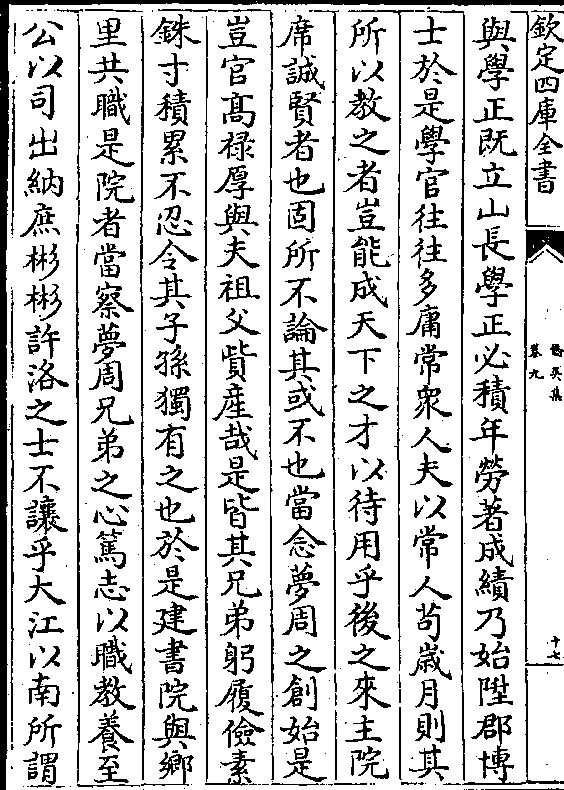 欽定四庫全書
卷九
十七
與學正既立山長學正必積年勞著成績乃始陞郡博
士於是學官往往多庸常衆人夫以常人苟歳月則其
所以教之者豈能成天下之才以待用乎後之來主院
席誠賢者也固所不論其或不也當念夢周之創始是
豈官髙禄厚與夫祖父貲産哉是皆其兄弟躬履儉素
銖寸積累不忍令其子孫獨有之也於是建書院與鄉
里共職是院者當察夢周兄弟之心篤志以職教養至
公以司出納庶彬彬許洛之士不讓乎大江以南所謂